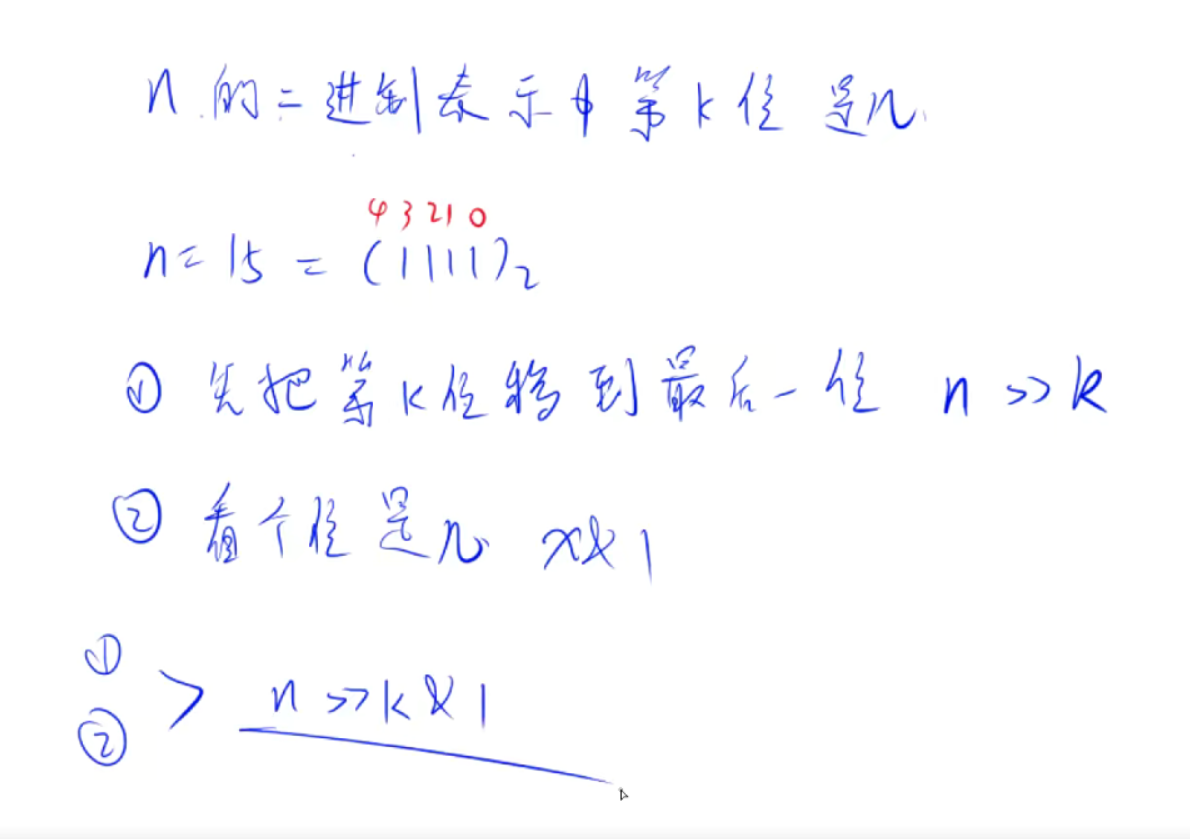 n的二进制表示中第k位是几
4 3 2 1 0
n = 15 = (1111)₂
① 先把第k位移到最后一位 n >> k
② 看个位是几 x&1
①
② > n >> k & 1